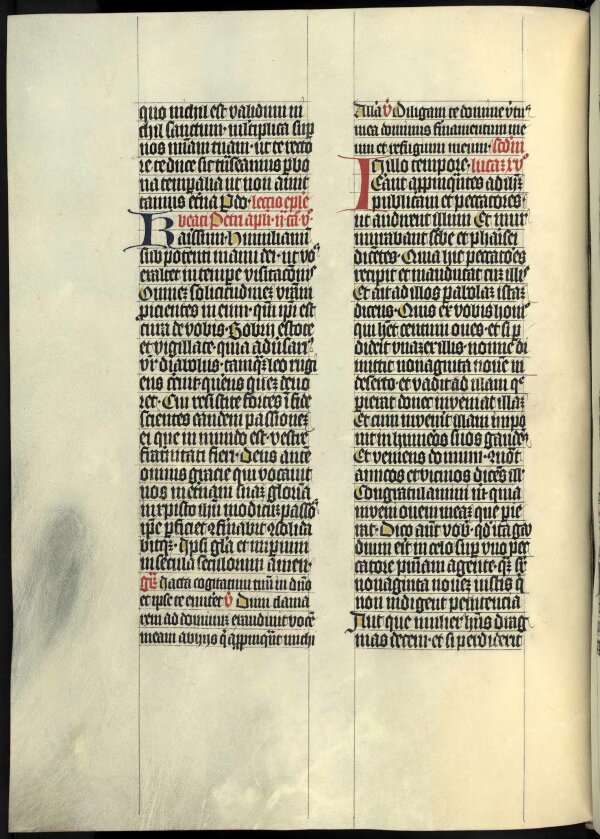 quo nichil est validum ni
chil sanctum· multiplica sup
nos miam tuam· ut te recto
re te duce sic transeamus p bo
na temporalia ut non amit
tamus eterna Per· lectio eple
beati Petri apli· ii· ca· v·
Karissimi· humiliami
sub potenti manu dei· ut vos
exaltet in tempe visitacois
Omnez solicitudinez vram
picientes in eum· qm ipi est
cura de vobis· Sobrii estote
et vigillate· quia adusari
us vr diabolus· tamqz leo rugi
ens circuit· querens quez deuo
ret· Cui resistite fortes i fide
scientes eandem passionez
ei que in mundo est· vestre
fraternitati fieri· Deus autez
omnis gracie qui vocauit
nos in eternam suaz gloria
in xpisto ihu modicuz passos
ipe pficiet 2firmabit 2solida
bitqz· Ipsi gla et imperium
in secula seculorum amen·
gr Jacta cogitatum tuum in dno
et ipse te enutriet v Dum clama
rem ad dominum exaudiuit vocez
meam ab hijs q appinquant michi
Alla v Diligam te domine virtus
mea dominus firmamentum me
um et refugium meum· scdm
In illo tempore· lucaz xv
Erant appinquantes ad ihm
publicani et peccatores·
ut audirent illum Et mur
murabant scribe et pharisei
dicentes· Quia hic peccatores
recipit et manducat cuz illis
Et ait ad illos parabolaz istaz
dicens· Quis ex vobis homo
qui habet centum oues· et si per
diderit vnaz ex illis· nonne di
mittit nonaginta noue in
deserto· et vadit ad illam que
perierat donec inveniat illaz
Et cum invenerit illam impo
nit in humeros suos gaudens
Et veniens domum· 2uocat
amicos et vicinos dicens illis
Congratulamini m quia
inveni ouem meaz que pie
rat· Dico aut vob· qd ita gau
dium erit in celo sup vno pec
catore peniam agente· q sr
nonaginta nouez iustis q
non indigent penitencia
Aut que mulier hns drag
mas decem· et si perdiderit